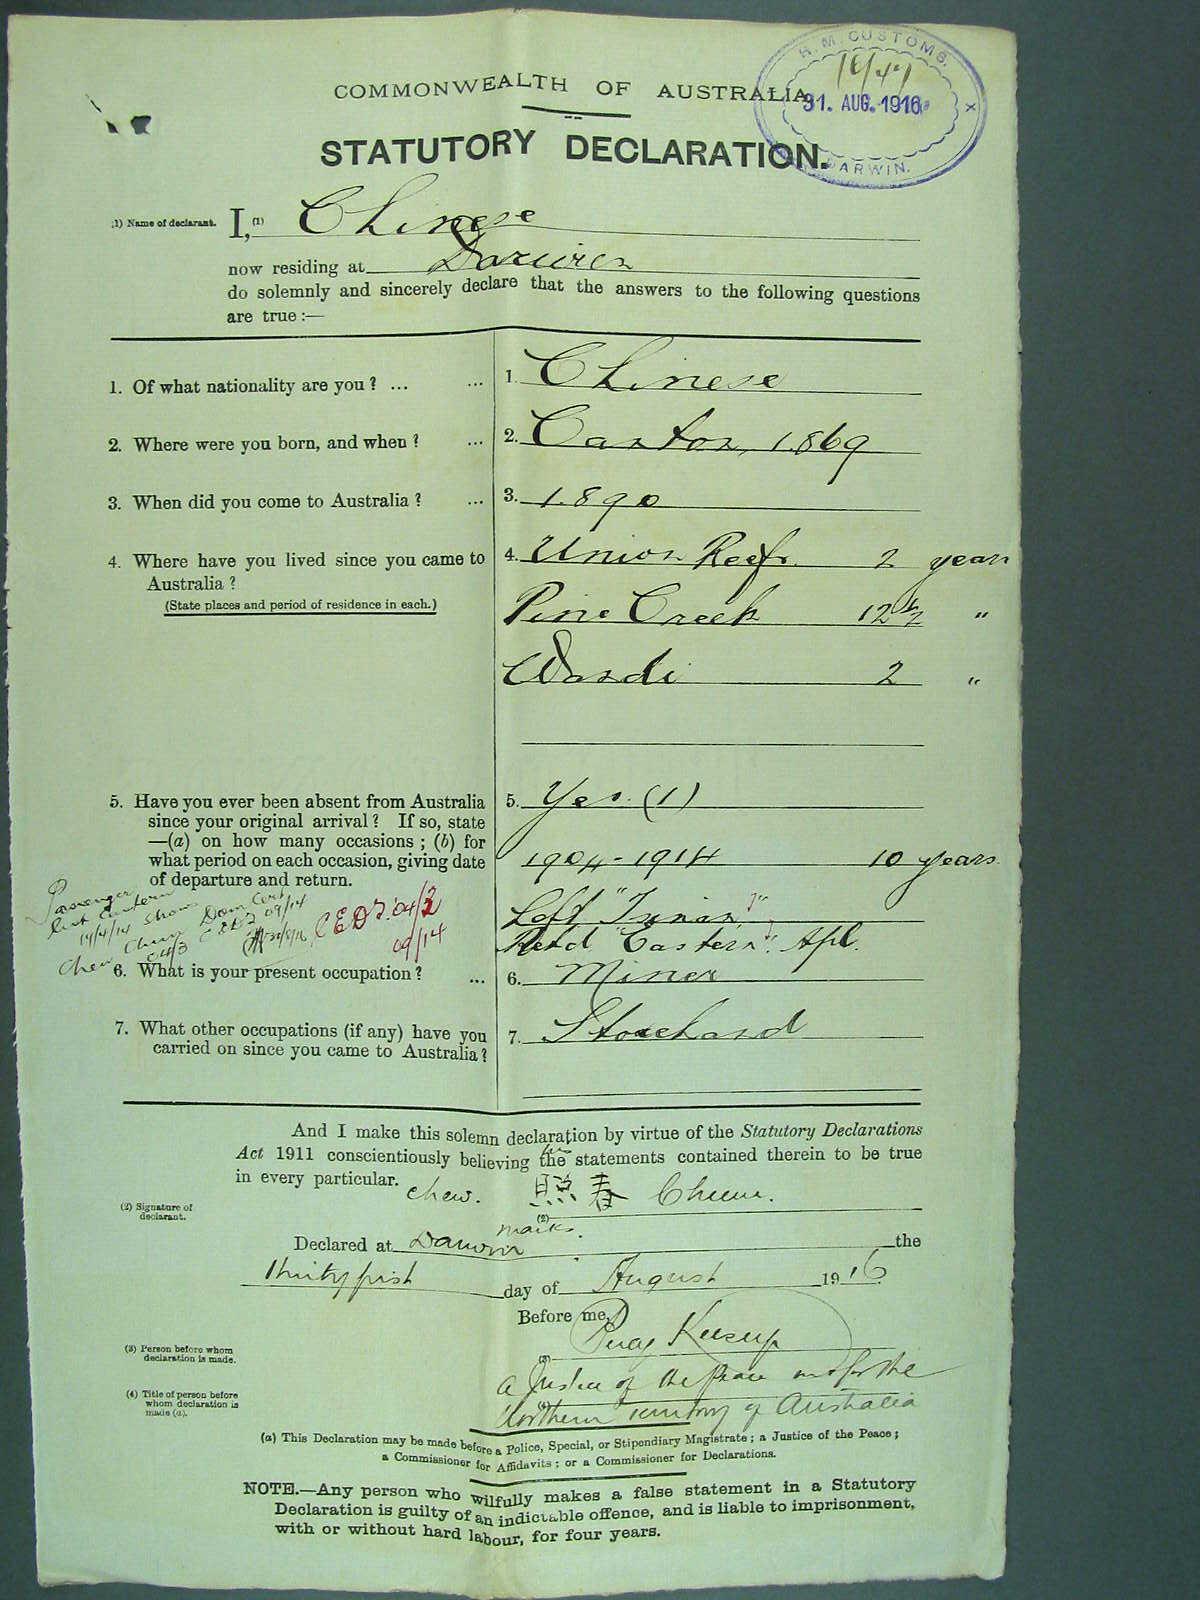 H. M. CUSTOMS.
16/47
31. AUG. 1916
DARWIN.
COMMONWEALTH OF AUSTRALIA
STATUTORY DECLARATION.
(1) Name of declarant. I,(1) Chinese
now residing at Darwin
do solemnly and sincerely declare that the answers to the following questions
are true :—
1. Of what nationality are you ? ... ... 1. Chinese
2. Where were you born, and when ? ... 2. Canton, 1869
3. When did you come to Australia ? ... 3. 1890
4. Where have you lived since you came to 4. Union Reefs 2 years
Australia ?
(State places and period of residence in each.) Pine Creek 12½ "
Wandi 2 "
5. Have you ever been absent from Australia 5. Yes. (1)
since your original arrival ? If so, state
—(a) on how many occasions ; (b) for
what period on each occasion, giving date 1904-1914 10 years
of departure and return.
Passenger
list Eastern
14/4/14 shows
Chew Cheung Dom Cert
04/3 CEDT 09/14
CEDT. 04/3
09/14
Left "Tsinan"
Retd "Eastern". Apl.
6. What is your present occupation ? ... 6. Miner
7. What other occupations (if any) have you 7. Storehand
carried on since you came to Australia ?
And I make this solemn declaration by virtue of the Statutory Declarations
Act 1911 conscientiously believing the statements contained therein to be true
in every particular.
(2) Signature of
declarant.
Chew. 照春 Cheun.
(2)
marks.
Declared at Darwin the
thirty first day of August 1916
Before me,
(3) Person before whom
declaration is made.
(3) Percy
(4) Title of person before
whom declaration is
made (a).
a Justice of the Peace in & for the
(4) Northern Territory of Australia
(a) This Declaration may be made before a Police, Special, or Stipendiary Magistrate ; a Justice of the Peace ;
a Commissioner for Affidavits ; or a Commissioner for Declarations.
NOTE.—Any person who wilfully makes a false statement in a Statutory
Declaration is guilty of an indictable offence, and is liable to imprisonment,
with or without hard labour, for four years.